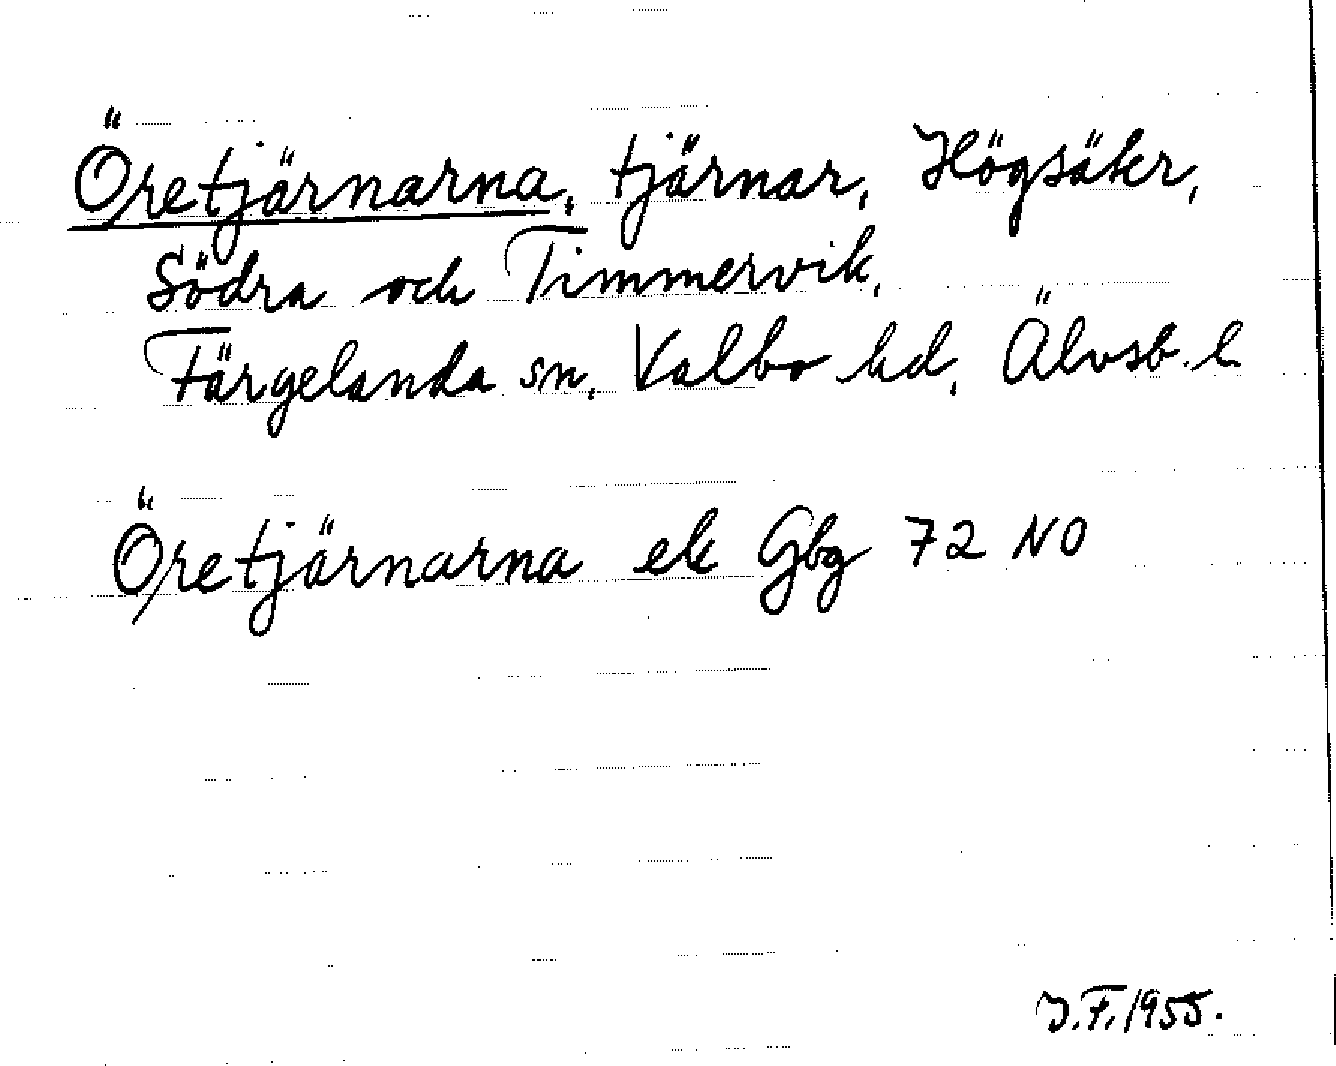 Öretjärnarna, tjärnar, Högsäkr,
Södra och Timmervik,
Färgelanda sn, Valbo hd, Älvsb. l
Öretjärnarna ek Gbg 72 NO
J.F. 1955.